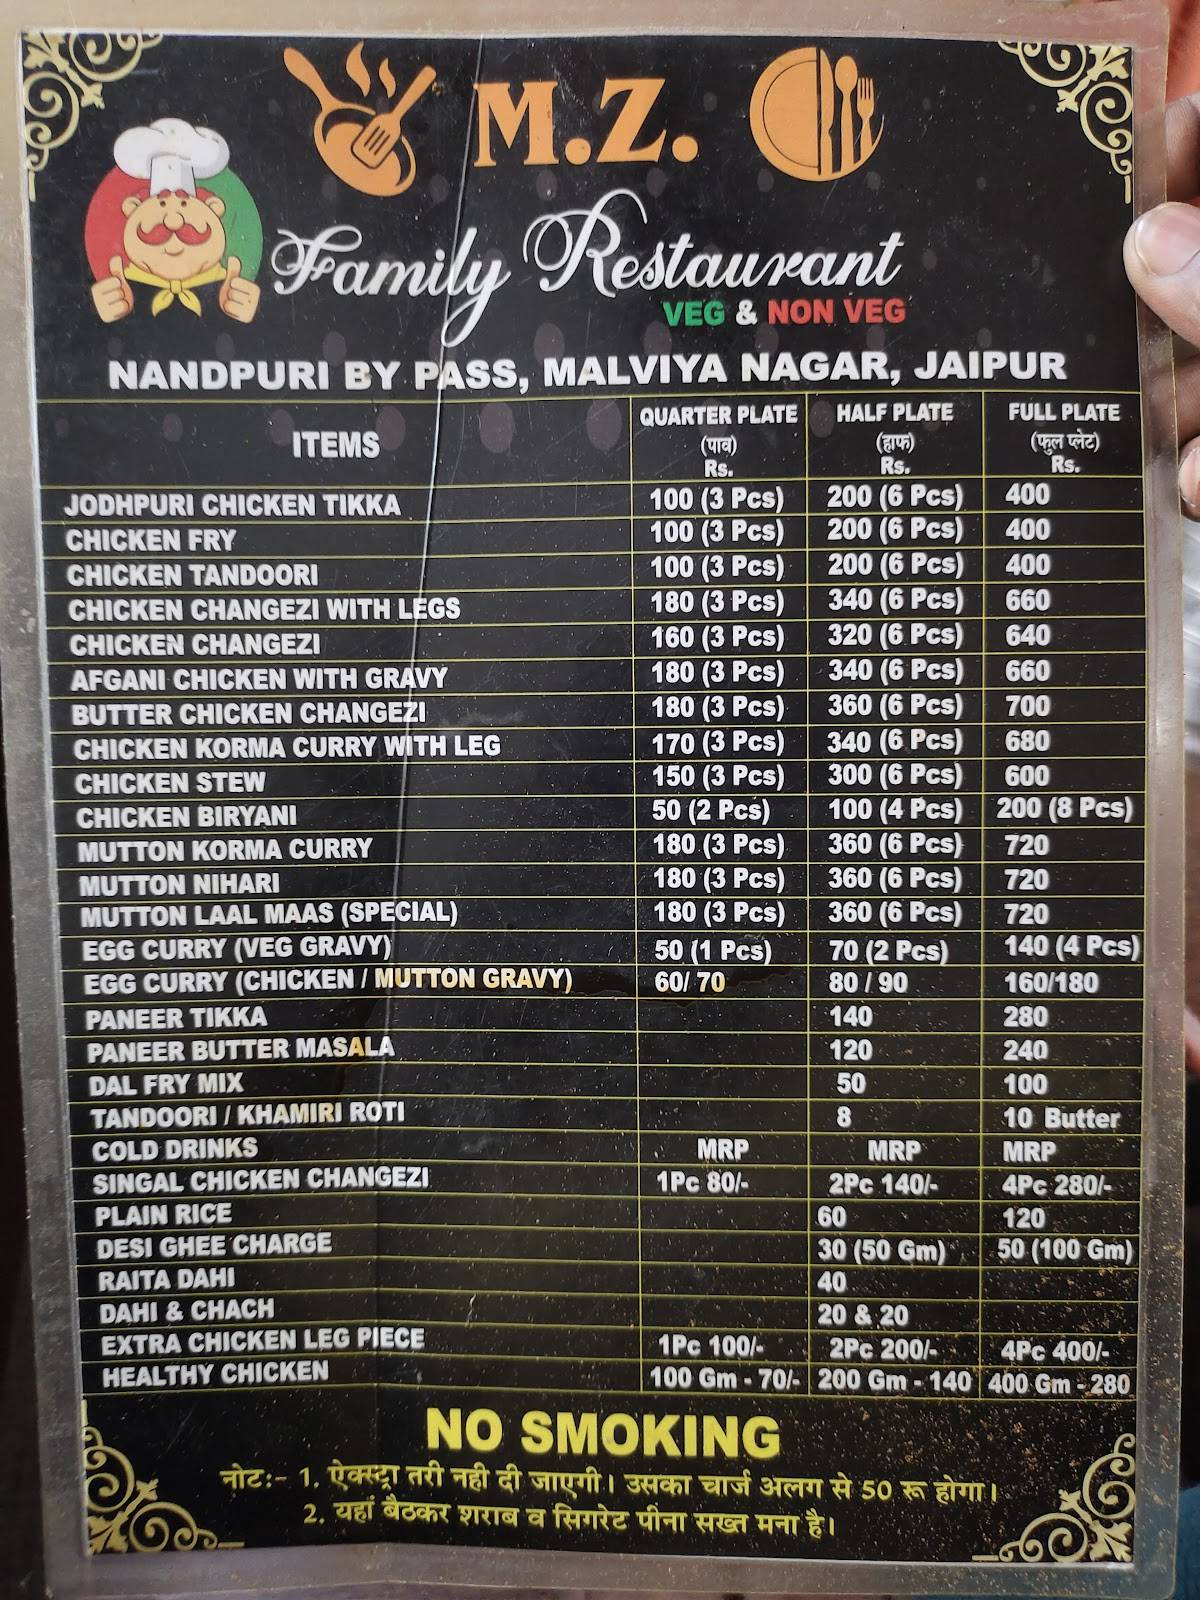 M.Z.
Family Restaurant
VEG & NON VEG
NANDPURI BY PASS, MALVIYA NAGAR, JAIPUR
ITEMS QUARTER PLATE (पाव) Rs. HALF PLATE (हाफ) Rs. FULL PLATE (फुल प्लेट) Rs.
JODHPURI CHICKEN TIKKA 100 (3 Pcs) 200 (6 Pcs) 400
CHICKEN FRY 100 (3 Pcs) 200 (6 Pcs) 400
CHICKEN TANDOORI 100 (3 Pcs) 200 (6 Pcs) 400
CHICKEN CHANGEZI WITH LEGS 180 (3 Pcs) 340 (6 Pcs) 660
CHICKEN CHANGEZI 160 (3 Pcs) 320 (6 Pcs) 640
AFGANI CHICKEN WITH GRAVY 180 (3 Pcs) 340 (6 Pcs) 660
BUTTER CHICKEN CHANGEZI 180 (3 Pcs) 360 (6 Pcs) 700
CHICKEN KORMA CURRY WITH LEG 170 (3 Pcs) 340 (6 Pcs) 680
CHICKEN STEW 150 (3 Pcs) 300 (6 Pcs) 600
CHICKEN BIRYANI 50 (2 Pcs) 100 (4 Pcs) 200 (8 Pcs)
MUTTON KORMA CURRY 180 (3 Pcs) 360 (6 Pcs) 720
MUTTON NIHARI 180 (3 Pcs) 360 (6 Pcs) 720
MUTTON LAAL MAAS (SPECIAL) 180 (3 Pcs) 360 (6 Pcs) 720
EGG CURRY (VEG GRAVY) 50 (1 Pcs) 70 (2 Pcs) 140 (4 Pcs)
EGG CURRY (CHICKEN / MUTTON GRAVY) 60/ 70 80 / 90 160/180
PANEER TIKKA 140 280
PANEER BUTTER MASALA 120 240
DAL FRY MIX 50 100
TANDOORI / KHAMIRI ROTI 8 10 Butter
COLD DRINKS MRP MRP MRP
SINGAL CHICKEN CHANGEZI 1Pc 80/- 2Pc 140/- 4Pc 280/-
PLAIN RICE 60 120
DESI GHEE CHARGE 30 (50 Gm) 50 (100 Gm)
RAITA DAHI 40
DAHI & CHACH 20 & 20
EXTRA CHICKEN LEG PIECE 1Pc 100/- 2Pc 200/- 4Pc 400/-
HEALTHY CHICKEN 100 Gm - 70/- 200 Gm - 140 400 Gm - 280
NO SMOKING
नोट:- 1. ऐक्स्ट्रा तरी नही दी जाएगी। उसका चार्ज अलग से 50 रू होगा।
2. यहां बैठकर शराब व सिगरेट पीना सख्त मना है।